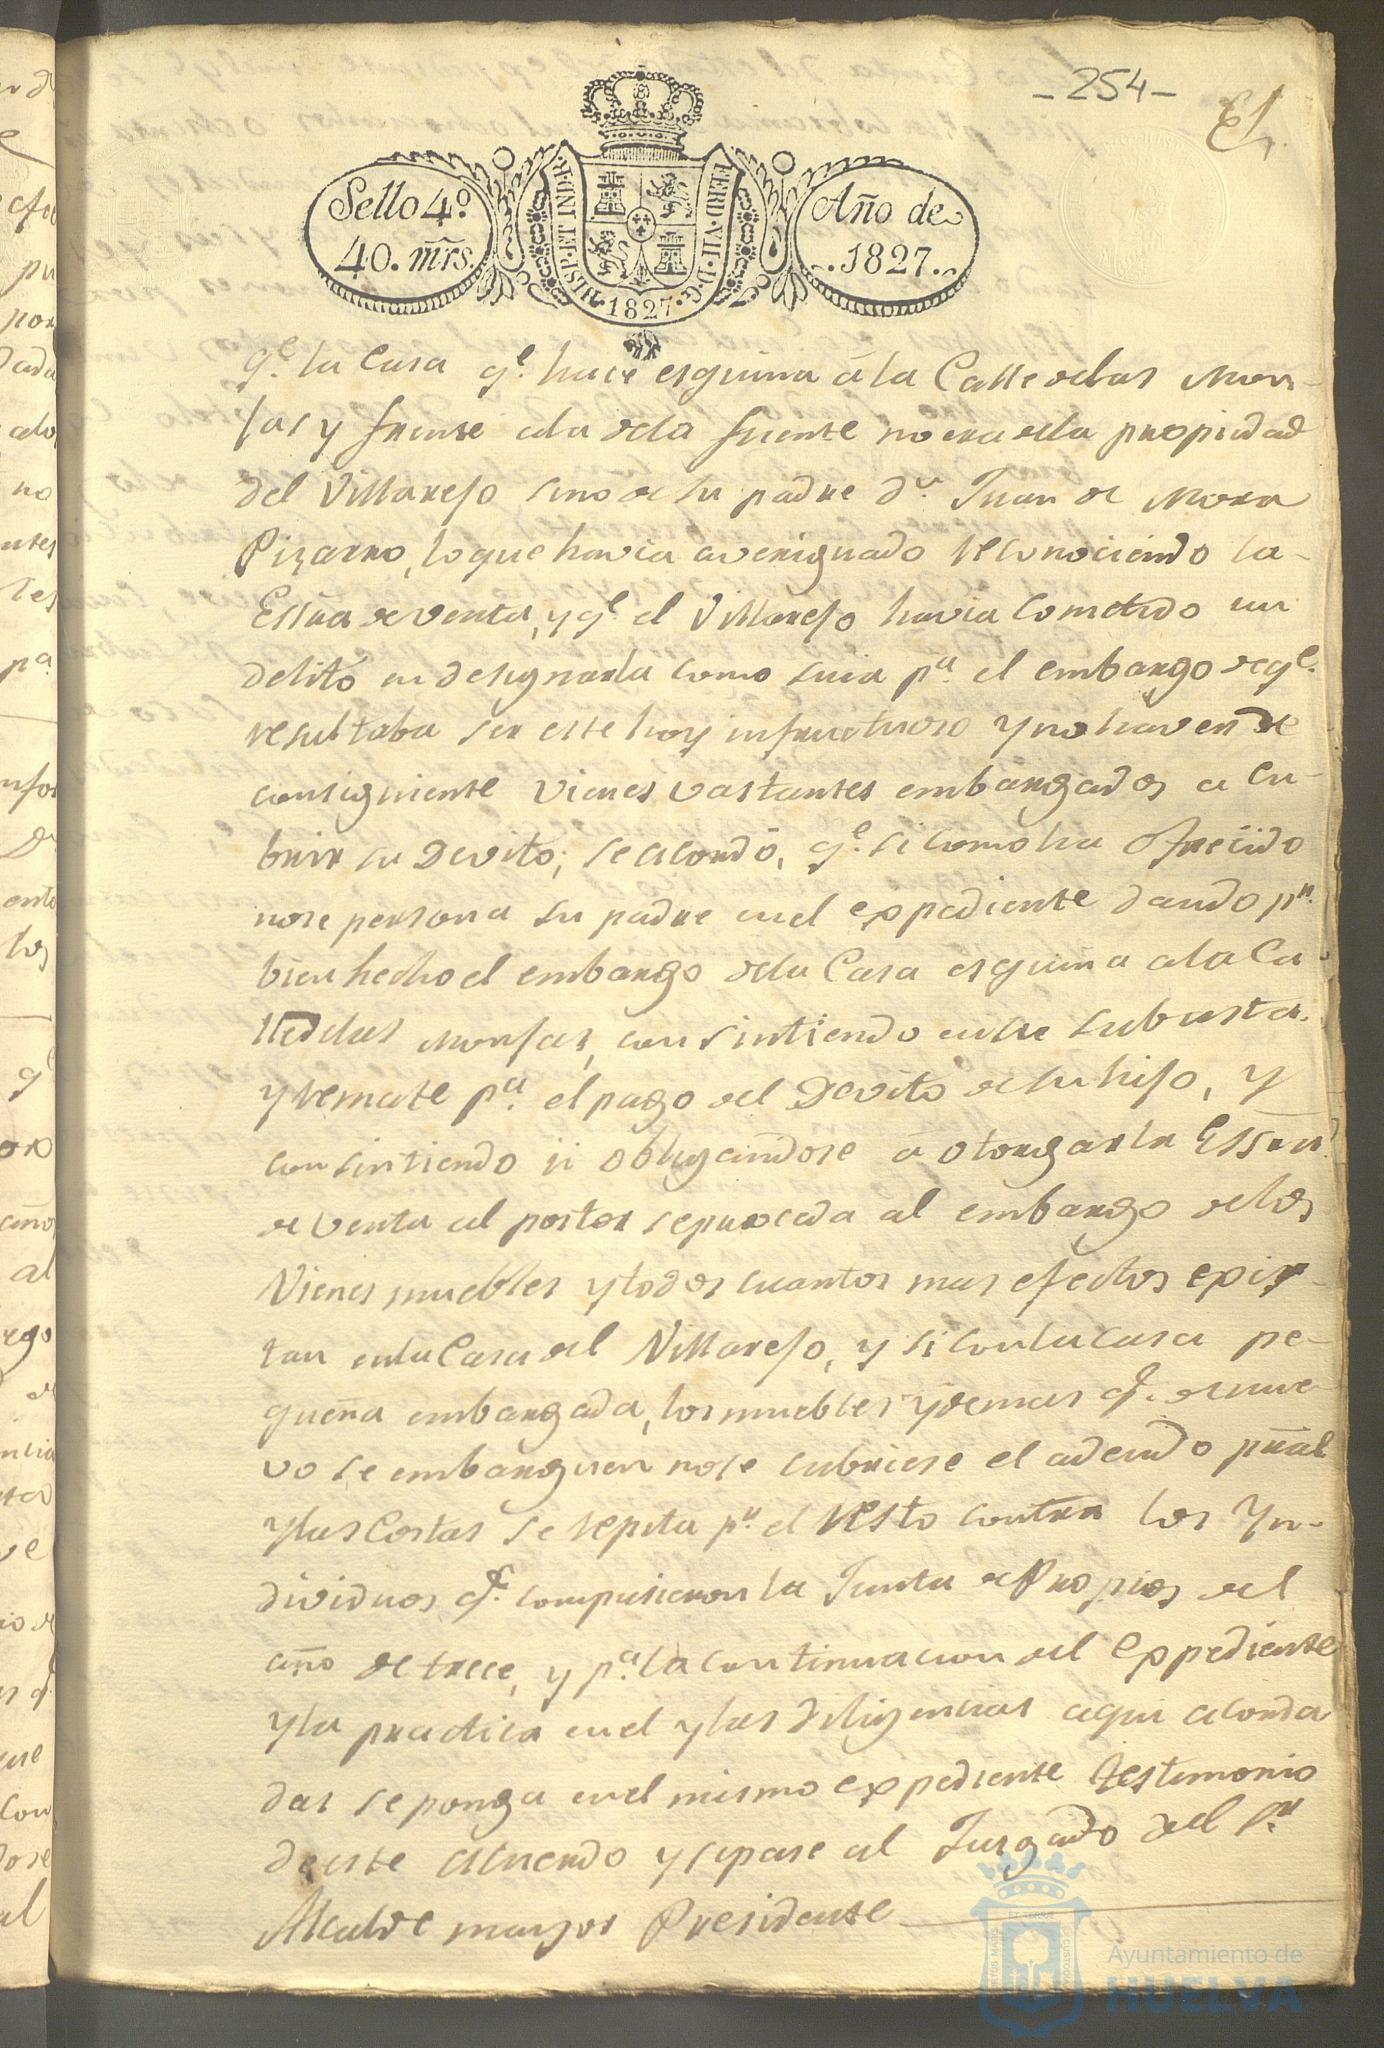 - 254 -
Sello 4º
40. mrs.
HISP. ET IND. R.
FERD. VII. D. G.
1827
Año de
1827
q.e la Casa q.e hace esquina á la Calle delas Mon-
jas y frente ala dela fuente no era dela propiedad
del Villarejo sino de su padre dn. Juan de Mora
Pizarro, lo que havia averiguado reconociendo la
Essra de venta, y q.e el Villarejo havia cometido un
delito en designarla como suia p.a el embargo de q.e
resultaba ser este hoy infructuoso y no haver de
consiguiente vienes vastantes embargados a cu-
brir su Devito; se acordó, q.e si como ha ofrecido
nose persona su padre enel expediente dando p.r
bien hecho el embargo dela Casa esquina ala Ca
lle delas Monjas, consintiendo en su subasta
y remate p.a el pago del Devito de su hijo, y
consintiendo ii obligandose á otorgar la Essra
de venta al postor se proceda al embargo delos
Vienes muebles y todos cuantos mas efectos exis-
tan enla Casa del Villarejo, y si con la casa pe-
queña embargada, los muebles y demas q.e de nue-
vo se embarguen nose cubriese el adeudo pral
y las Costas se repita p.r el resto contra los Yn-
dividuos q.e compusieron la Junta de Propios del
año de trece, y p.a la continuacion del Expediente
y la practica enel y las diligencias aqui acorda
das se ponga enel mismo expediente testimonio
de este Acuerdo y se pase al Juzgado del S.r
Alcalde mayor Presidente
Ayuntamiento de
HUELVA